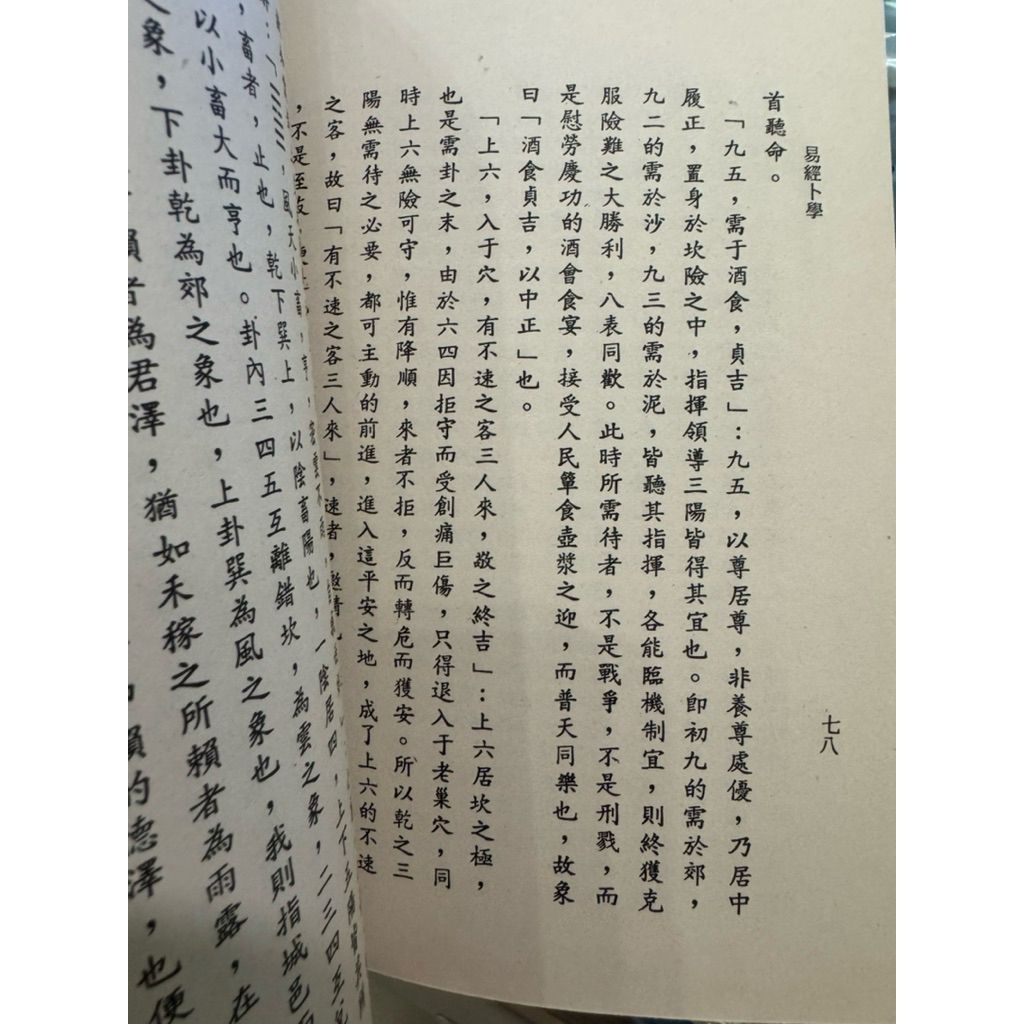 易經卜學
七八
首聽命。
「九五，需于酒食，貞吉」：九五，以尊居尊，非養尊處優，乃居中
履正，置身於坎險之中，指揮領導三陽皆得其宜也。即初九的需於郊，
九二的需於沙，九三的需於泥，皆聽其指揮，各能臨機制宜，則終獲克
服險難之大勝利，八表同歡。此時所需待者，不是戰爭，不是刑戮，而
是慰勞慶功的酒會食宴，接受人民簞食壺漿之迎，而普天同樂也，故象
曰「酒食貞吉，以中正」也。
「上六，入于穴，有不速之客三人來，敬之終吉」：上六居坎之極，
也是需卦之末，由於六四因拒守而受創痛巨傷，只得退入于老巢穴，同
時上六無險可守，惟有降順，來者不拒，反而轉危而獲安。所以乾之三
陽無需待之必要，都可主動的前進，進入這平安之地，成了上六的不速
之客，故曰「有不速之客三人來」，速者，邀請
，不是至
風天小畜，亨
，畜者，止也，乾下巽上，以陰畜陽也，一陰居四，上下五陽
以小畜大而亨也。卦內三四五互離錯坎，為雲之象，二三四互兌
之象，下卦乾為郊之象也，上卦巽為風之象也，我則指城邑
賴者為君澤，猶如禾稼之所賴者為雨露，在
賴的德澤，也便